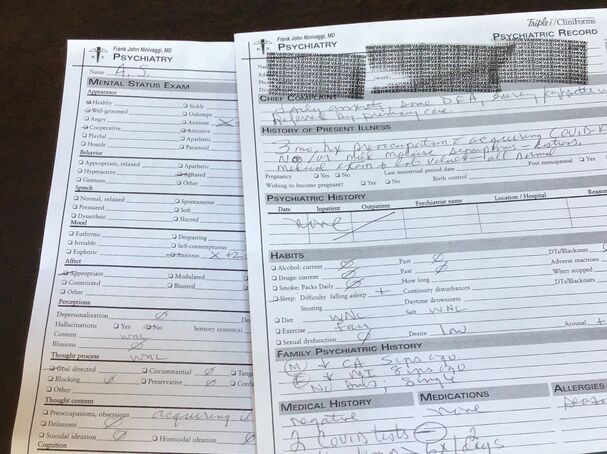 Frank John Ninivaggi, MD
PSYCHIATRY
Name A. S.
MENTAL STATUS EXAM
Appearance
Healthy Sickly
Well-groomed Unkempt
Angry Anxious X
Cooperative Attentive
Playful Apathetic
Hostile Paranoid
Behavior
Appropriate, relaxed Apathetic
Hyperactive Agitated
Gestures Other
Speech
Normal, relaxed Spontaneous
Pressured Soft
Dysarthric Slurred
Mood
Euthymic Despairing
Irritable Self-contemptuous
Euphoric Anxious X +2
Affect
Appropriate Modulated
Constricted Blunted
Other
Perceptions
Depersonalization Ø
Hallucinations Yes No Sensory system(s)
Content WNL
Illusions Ø
Thought process WNL
Goal directed Circumstantial Ø Tang
Blocking Ø Preservative Ø
Other
Thought content
Preoccupations, obsessions acquiring
Delusions Ø
Suicidal ideation Ø Homicidal ideation Ø
Cognition
Frank John Ninivaggi, MD
PSYCHIATRY
Triplei/Cliniforms
PSYCHIATRIC RECORD
CHIEF COMPLAINT
anxiety, some
Referred by primary care
HISTORY OF PRESENT ILLNESS
3 mo. hx preoccupation c acquiring COVID-1
No mild malaise symptoms - distress.
Medical exam + lab values - all normal
Pregnancy Yes No Last menstrual period date Post menopausal Yes
Wishing to become pregnant? Yes No Birth control
PSYCHIATRIC HISTORY
Date Inpatient Outpatient Psychiatrist name Location / Hospital Reason
none
HABITS
Alcohol: current Ø Past Ø DTs/Blackouts
Drugs: current Ø Past Ø Adverse reactions
Smoke: Packs Daily Ø How long When stopped
Sleep: Difficulty falling asleep + Continuity disturbances DTs/Blackouts
Snoring Daytime drowsiness
Diet WNL Salt WNL
Exercise fair
Sexual dysfunction Ø Desire low Arousal +
FAMILY PSYCHIATRIC HISTORY
(M) ↓ CA 5 yrs ago
(F) ↓ MI 8 yrs ago
No sibs; single
MEDICAL HISTORY MEDICATIONS ALLERGIES
negative none
2 COVID tests (-)